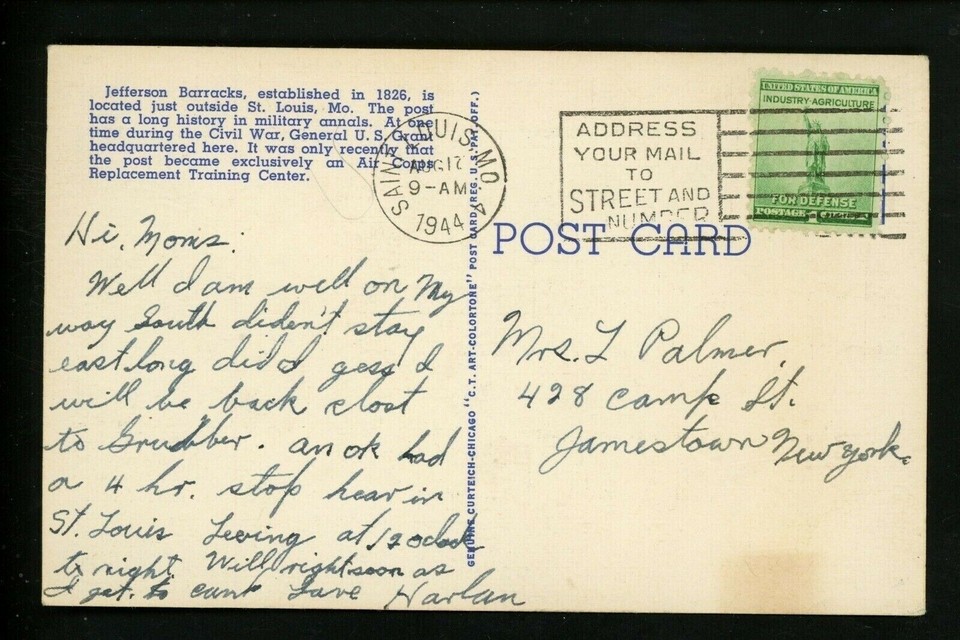 Jefferson Barracks, established in 1826, is
located just outside St. Louis, Mo. The post
has a long history in military annals. At one
time during the Civil War, General U. S. Grant
headquartered here. It was only recently that
the post became exclusively an Air Corps
Replacement Training Center.
SAINT LOUIS, MO. 4
AUG 17
9-AM
1944
ADDRESS
YOUR MAIL
TO
STREET AND
NUMBER
UNITED STATES OF AMERICA
INDUSTRY·AGRICULTURE
FOR DEFENSE
POSTAGE
POST CARD
GENUINE CURTEICH-CHICAGO "C.T. ART-COLORTONE" POST CARD (REG. U.S. PAT. OFF.)
Hi, Moms:
Well I am well on My
way South diden't stay
east long did I gess I
will be back clost
to Grubber. an ok had
a 4 hr. stop hear in
St. Louis Leeving at 12 oclock
to night. Will right soon as
I get to camp Love Harlan
Mrs. L Palmer,
428 Camp St.
Jamestown New York.